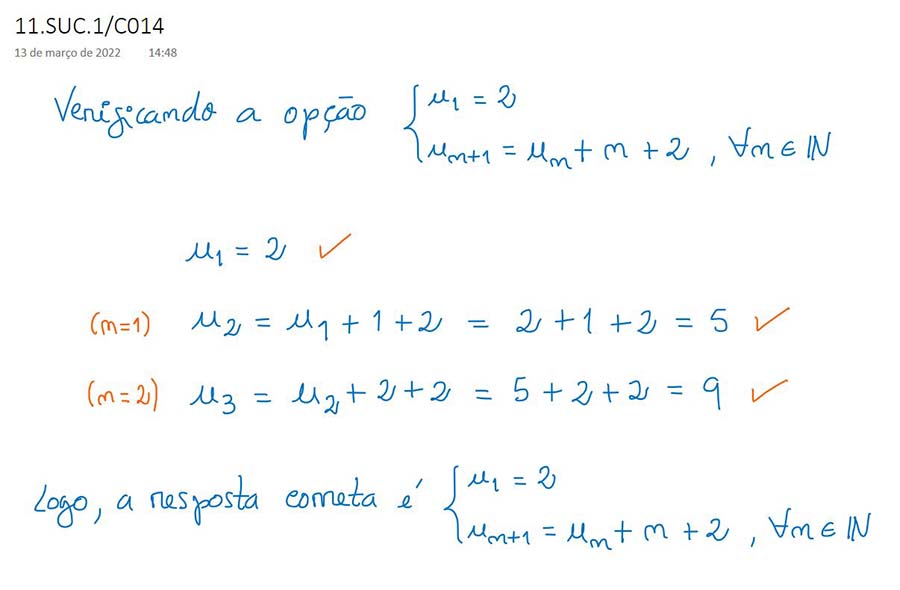 11.SUC.1/C014
13 de março de 2022 14:48
Verificando a opção { u₁ = 2
uₙ₊₁ = uₙ + n + 2 , ∀n ∈ ℕ
u₁ = 2 ✓
(n=1) u₂ = u₁ + 1 + 2 = 2 + 1 + 2 = 5 ✓
(n=2) u₃ = u₂ + 2 + 2 = 5 + 2 + 2 = 9 ✓
Logo, a resposta correta é { u₁ = 2
uₙ₊₁ = uₙ + n + 2 , ∀n ∈ ℕ